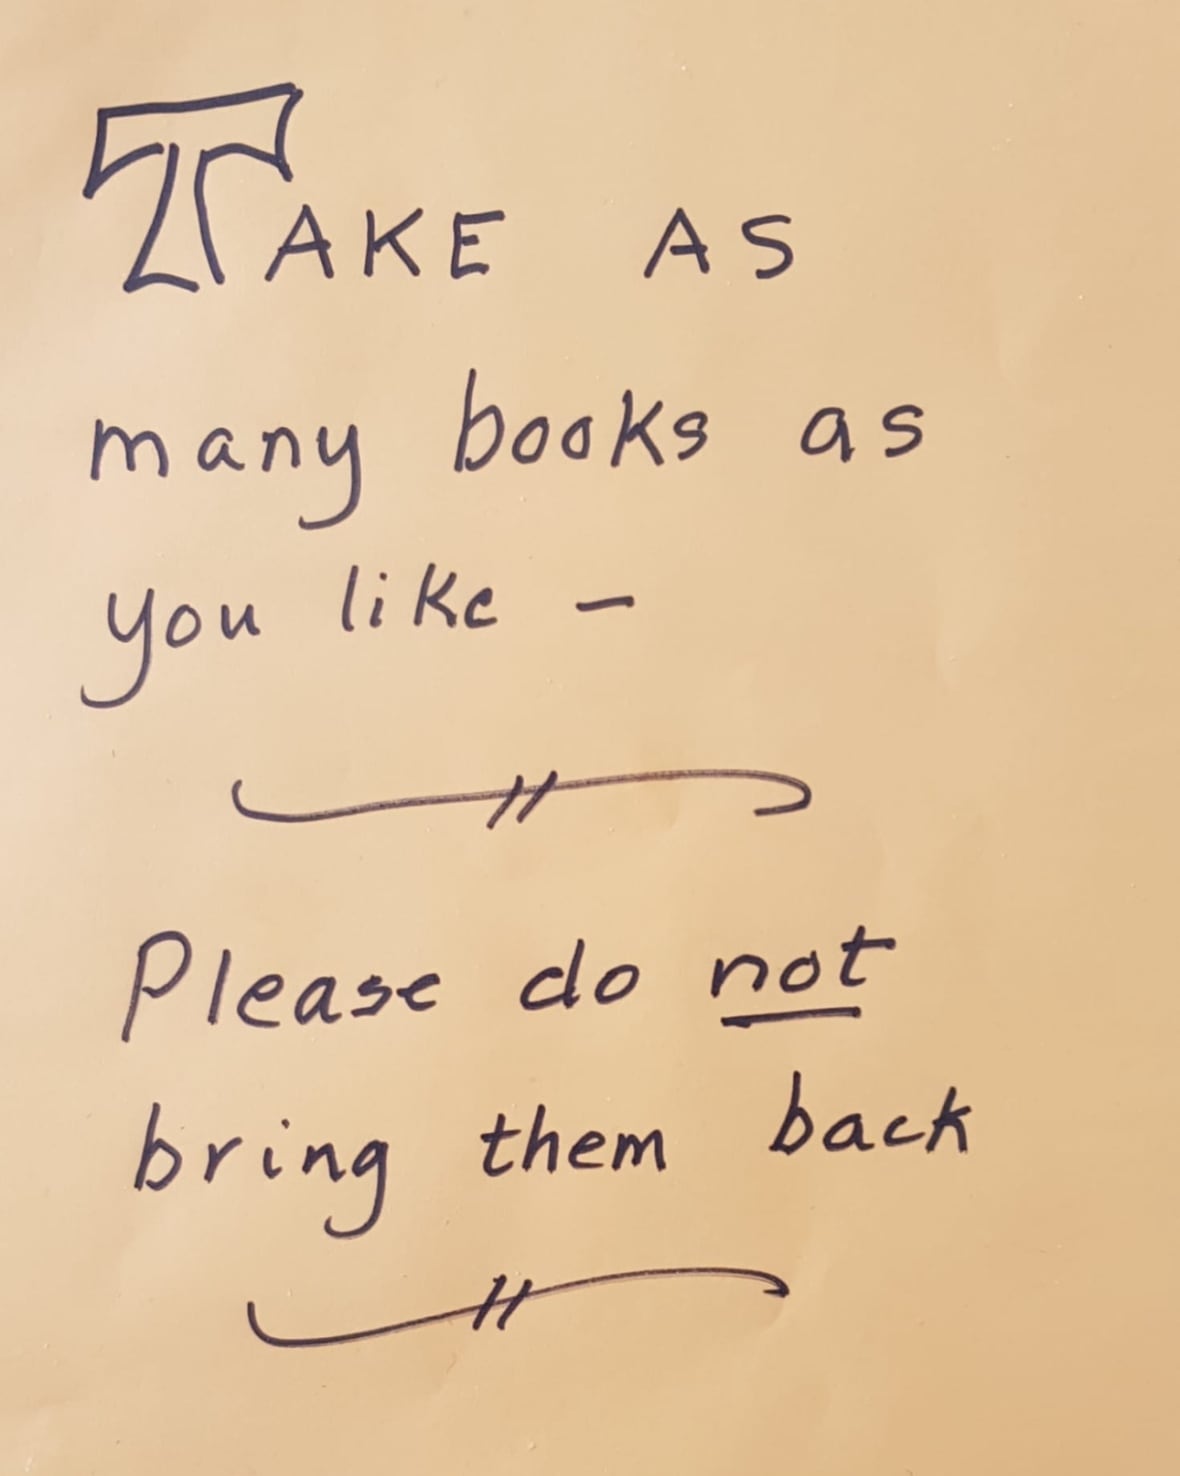 TAKE AS
many books as
you like -
Please do not
bring them back